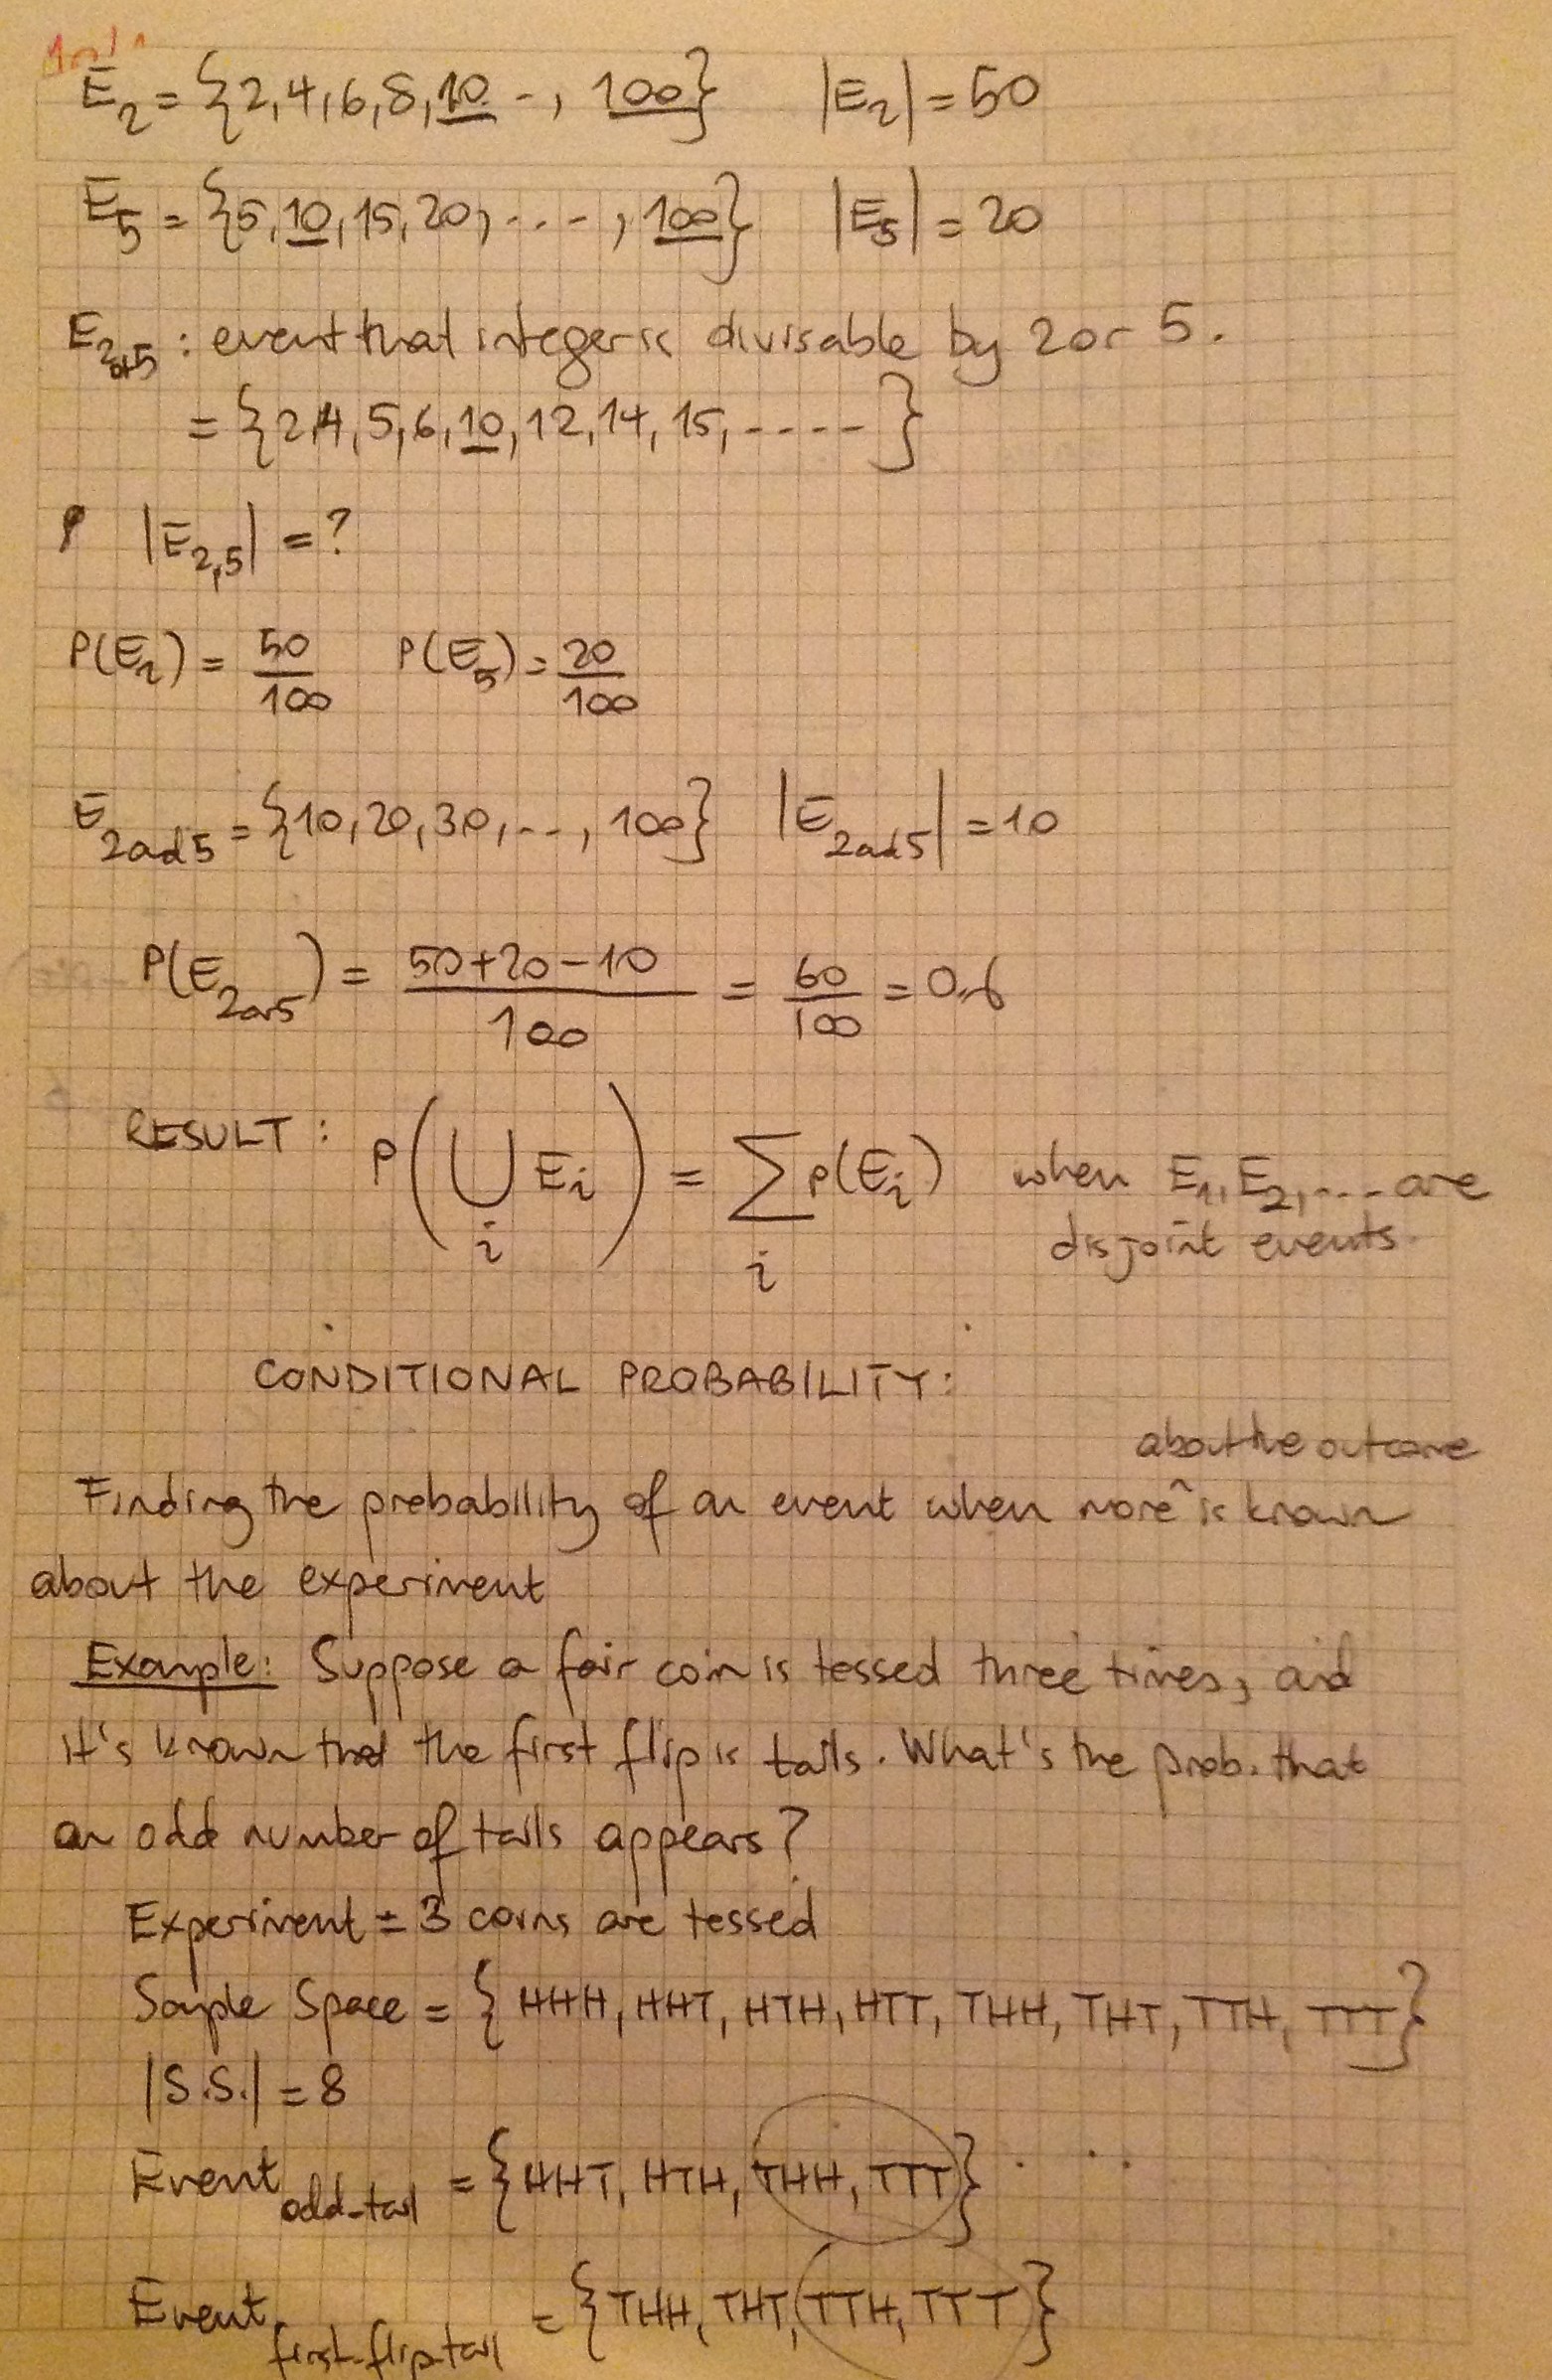 E₂ = {2,4,6,8,10 - -, 100} |E₂| = 50
E₅ = {5,10,15,20, ...., 100} |E₅| = 20
E₂ₒᵣ₅ : event that integer is divisable by 2 or 5.
= {2,4,5,6,10,12,14,15, - - - - }
|E₂,₅| = ?
P(E₂) = 50/100 P(E₅) = 20/100
E_2and5 = {10,20,30,..., 100} |E_2and5| = 10
P(E_2or5) = (50+20-10)/100 = 60/100 = 0.6
RESULT : P(⋃_i E_i) = ∑_i P(E_i) when E₁, E₂, .... are
disjoint events.
CONDITIONAL PROBABILITY:
about the outcome
Finding the probability of an event when more ^ is known
about the experiment
Example: Suppose a fair coin is tessed three times, and
it's known that the first flip is tails. What's the prob. that
an odd number of tails appears?
Experiment = 3 coins are tessed
Sample Space = { HHH, HHT, HTH, HTT, THH, THT, TTH, TTT}
|S.S.| = 8
Event_odd-tail = {HHT, HTH, THH, TTT}
Event_first-flip-tail = {THH, THT, TTH, TTT}